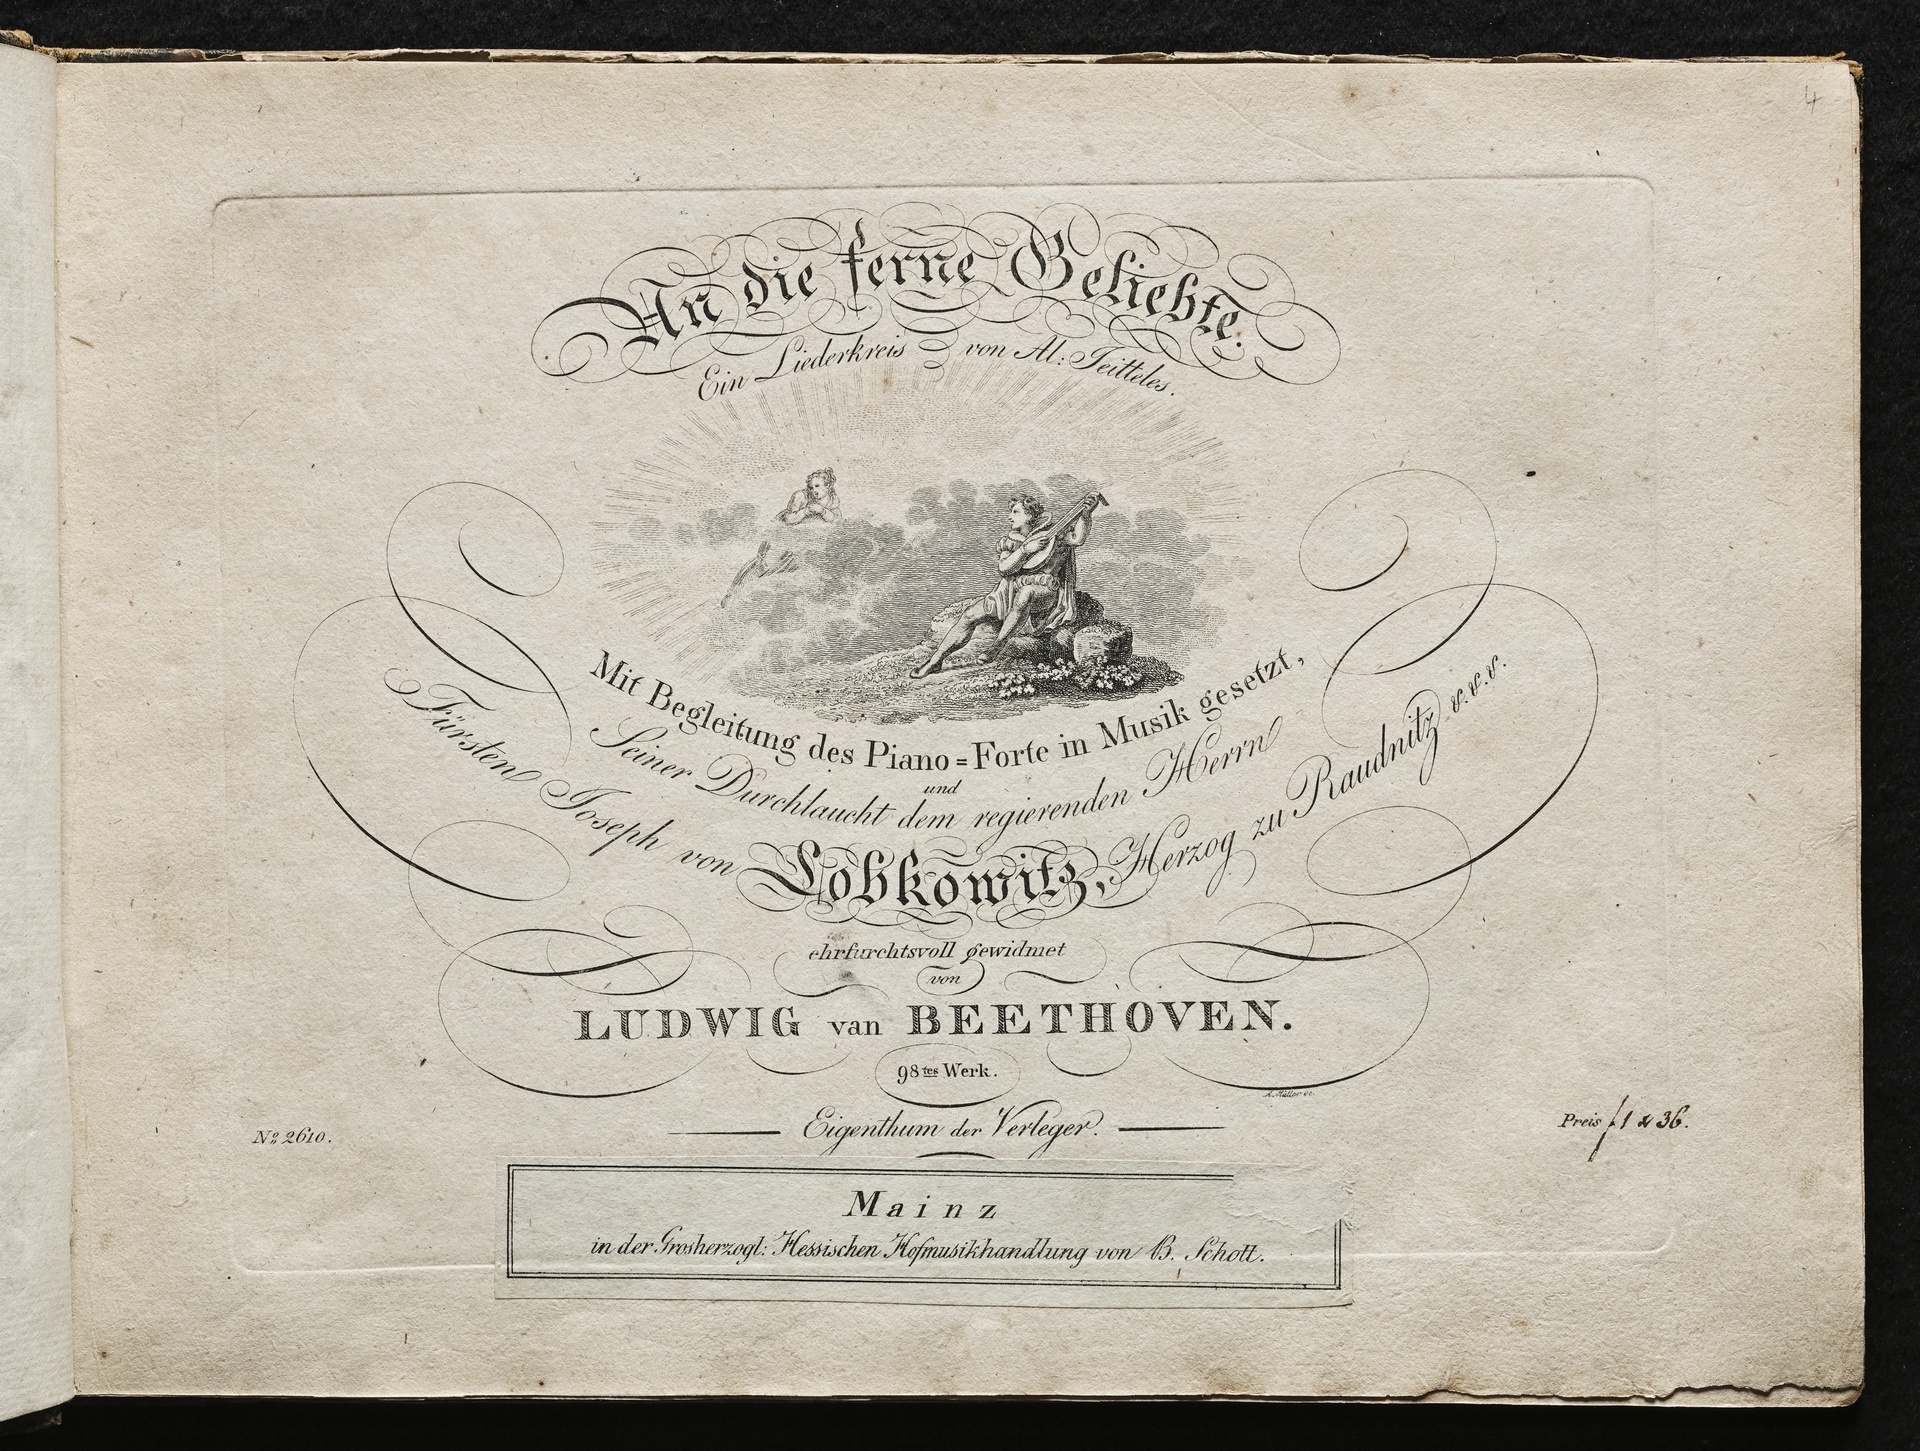 4
An die ferne Geliebte.
Ein Liederkreis von Al: Jeitteles.
Mit Begleitung des Piano=Forte in Musik gesetzt,
und
Seiner Durchlaucht dem regierenden Herrn
Fürsten Joseph von Lobkowitz, Herzog zu Raudnitz &. &. &.
ehrfurchtsvoll gewidmet
von
LUDWIG van BEETHOVEN.
98tes Werk.
A. Müller sc.
Eigenthum der Verleger.
No 2610.
Preis f 1 x 36.
Mainz
in der Grosherzogl: Hessischen Hofmusikhandlung von B. Schott.